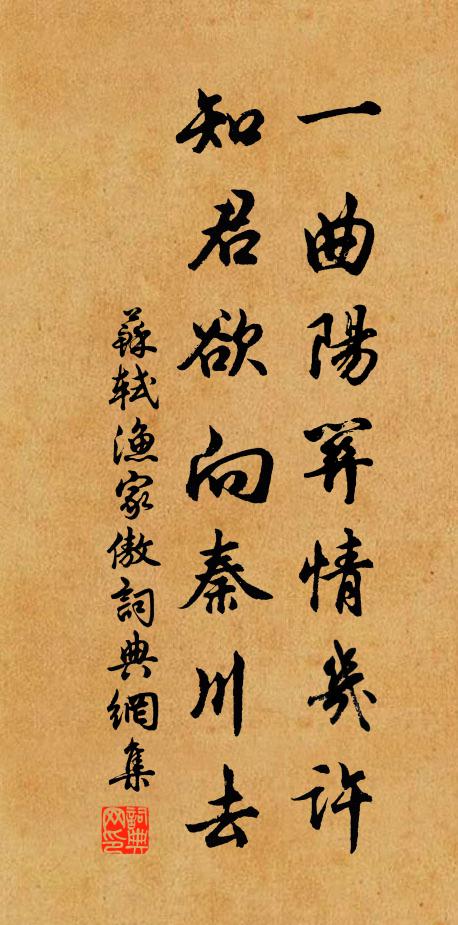 一曲陽關情幾許
知君欲向秦川去
蘇軾漁家傲詞典網集
詞典网印